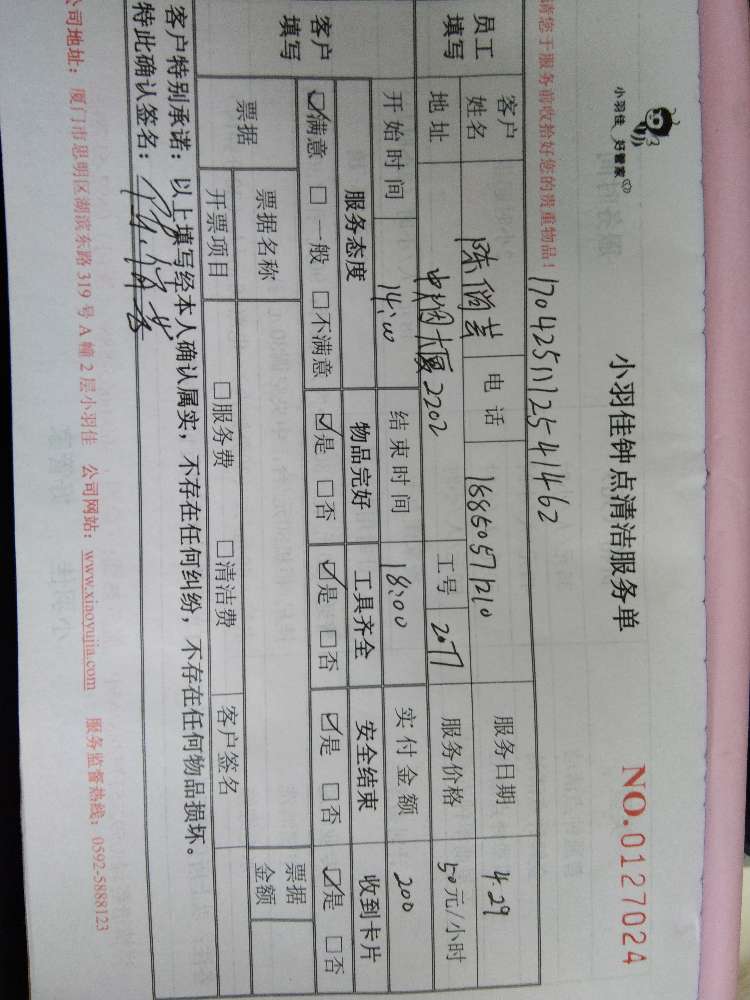 小羽佳 好管家
小羽佳钟点清洁服务单
NO.0127024
请您于服务前收拾好您的贵重物品！
员工填写
客户姓名
电话
服务日期 4.29
地址
2202
工号 2077
服务价格 50元/小时
开始时间 14:00 结束时间 18:00 实付金额 200
客户填写
服务态度 物品完好 工具齐全 安全结束 收到卡片
☑满意 □一般 □不满意 ☑是 □否 ☑是 □否 ☑是 □否 ☑是 □否
票据
票据名称
票据金额
开票项目 □服务费 □清洁费 客户签名
客户特别承诺：以上填写经本人确认属实，不存在任何纠纷，不存在任何物品损坏。
特此确认签名：
公司地址：厦门市思明区湖滨东路319号A幢2层小羽佳 公司网站：www.xiaoyujia.com 服务监督热线：0592-5888123